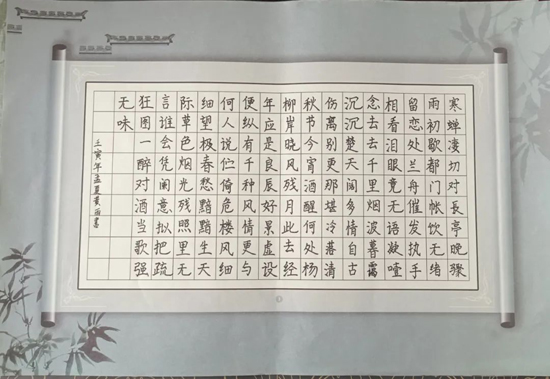 寒蝉凄切对長亭晚骤
雨初歇都门帐饮无绪
留恋处兰舟催发执手
相看泪眼竟无语凝噎
念去去千里烟波暮霭
沉沉楚天阔多情自古
伤离别更那堪冷落清
秋节今宵酒醒何处杨
柳岸晓风残月此去经
年应是良辰好景虚设
便纵有千种风情更与
何人说伫倚危楼风细
细望极春愁黯黯生天
际草色烟光残照里无
言谁会凭阑意拟把疏
狂图一醉对酒当歌强
无味
壬寅年孟夏黄